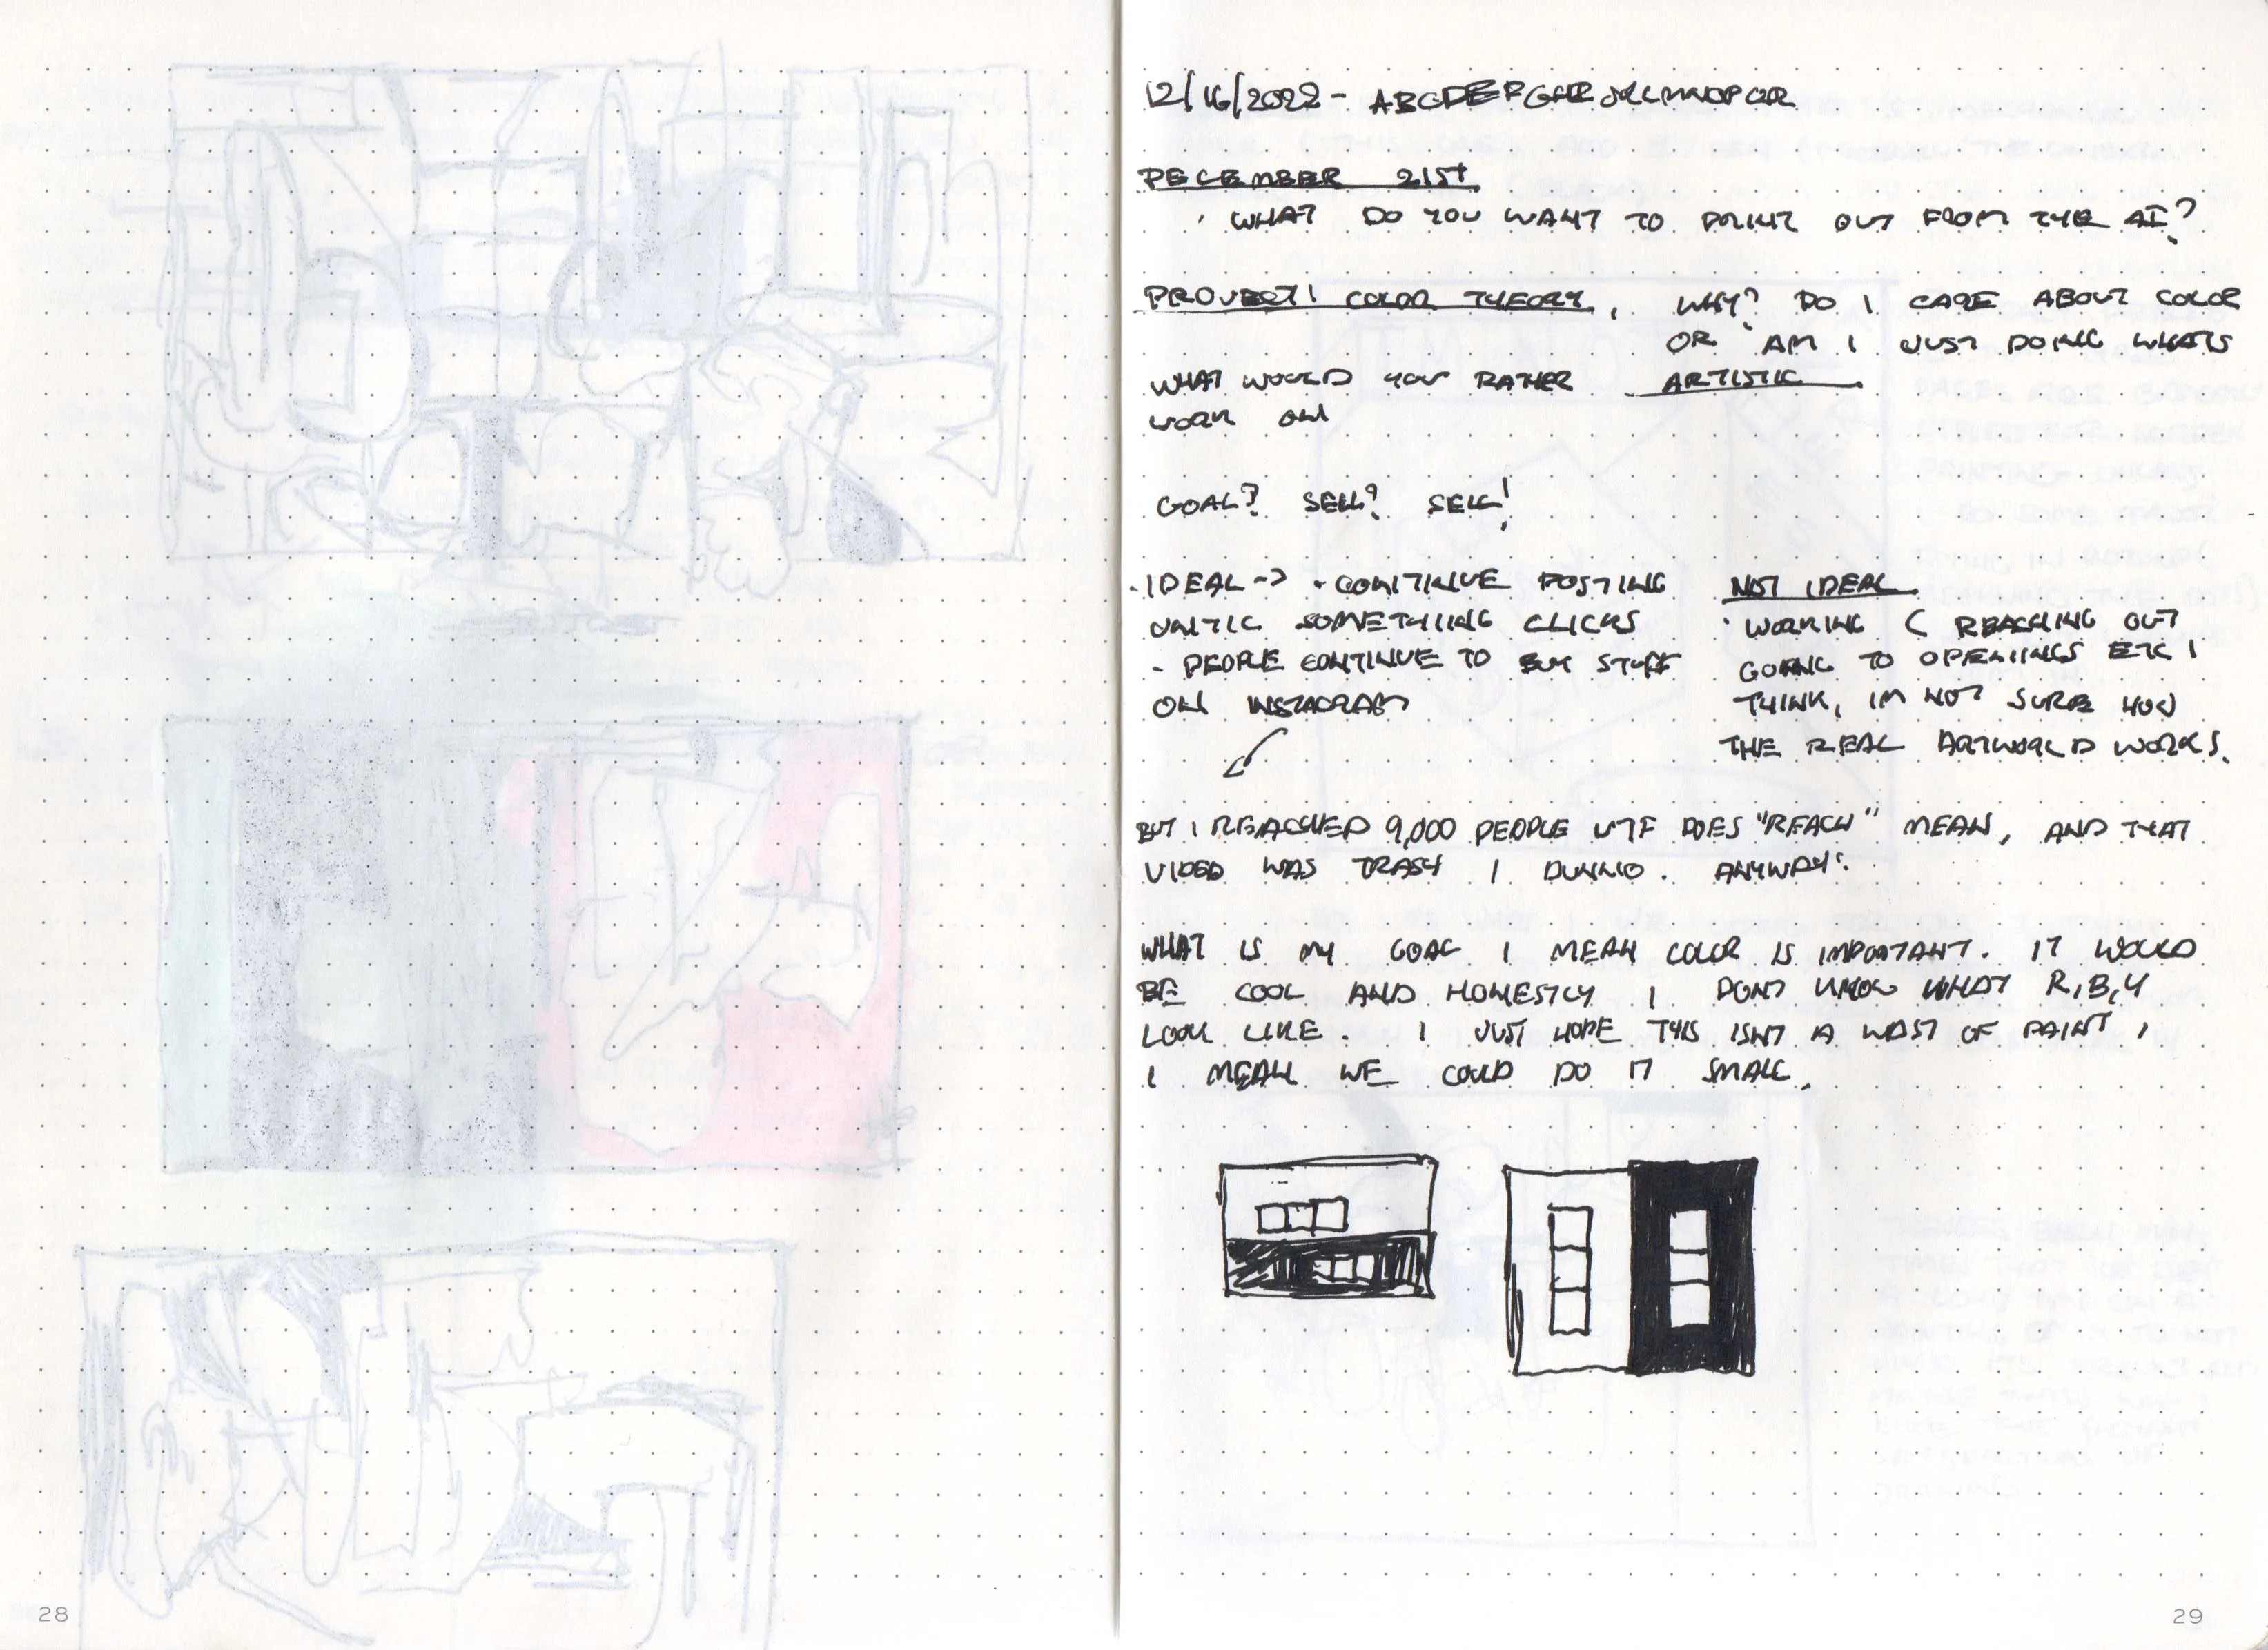 12/16/2022 - ABCDEFGHIJKLMNOPQR
DECEMBER 21ST
· WHAT DO YOU WANT TO PRINT OUT FROM THE AI?
PROJECT! COLOR THEORY, WHY? DO I CARE ABOUT COLOR
OR AM I JUST DOING WHATS
ARTISTIC
WHAT WOULD YOU RATHER
WORK ON
GOAL? SELL? SELL!
· IDEAL -> · CONTINUE POSTING
UNTIL SOMETHING CLICKS
- PEOPLE CONTINUE TO BUY STUFF
ON INSTAGRAM
NOT IDEAL
· WORKING ( REACHING OUT
GOING TO OPENINGS ETC I
THINK, IM NOT SURE HOW
THE REAL ARTWORLD WORKS.
BUT I REACHED 9,000 PEOPLE WTF DOES "REACH" MEAN, AND THAT
VIDEO WAS TRASH I DUNNO. ANYWAY.
WHAT IS MY GOAL I MEAN COLOR IS IMPORTANT. IT WOULD
BE COOL AND HONESTLY I DONT KNOW WHAT R,B,Y
LOOK LIKE. I JUST HOPE THIS ISNT A WAST OF PAINT,
I MEAN WE COULD DO IT SMALL.
28
29